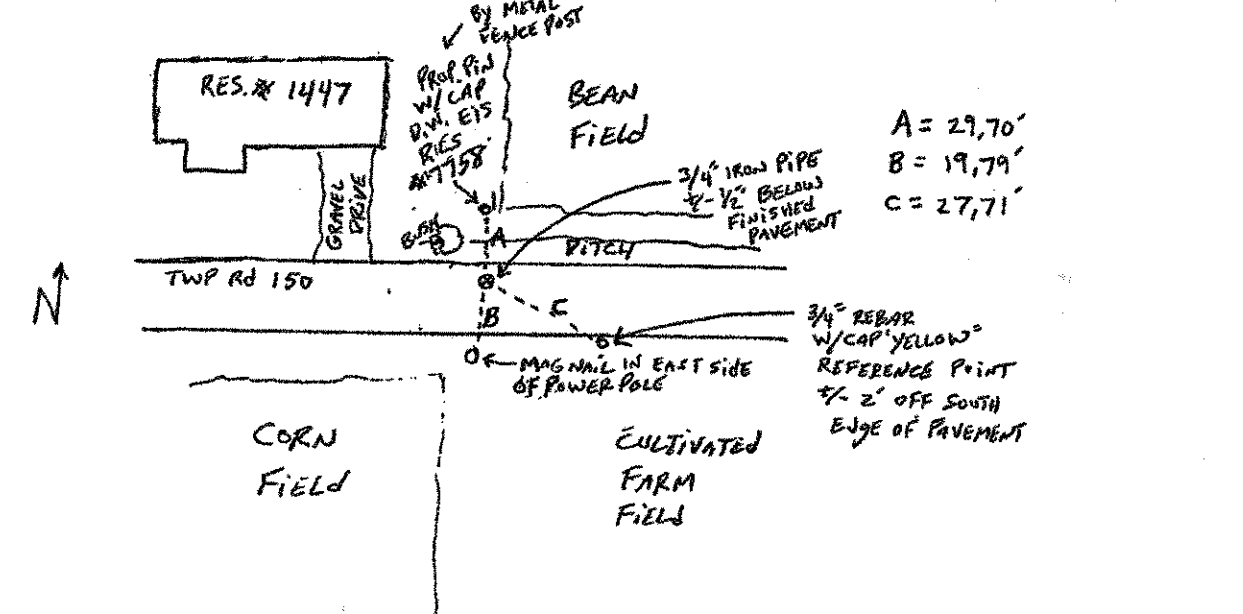 By METAL
FENCE POST
PROP. PIN
W/ CAP
D.W. EIS
RIES
#7958
RES. # 1447
BEAN
FiELd
A = 29,70'
B = 19,79'
C = 27,71'
3/4" IRON PiPE
+/- 1/2" BELOW
FiNiSHEd
PAVEMENT
GRAVEL
DRIVE
BUSH
A
DiTCH
TWP Rd 150
N
C
B
3/4" REBAR
W/CAP "YELLOW"
REFERENCE POiNT
+/- 2' OFF SOUTH
EdgE OF PAVEMENT
MAG NAiL IN EAST SidE
OF POWER POLE
CORN
FiELd
CULTiVATEd
FARM
FiELd